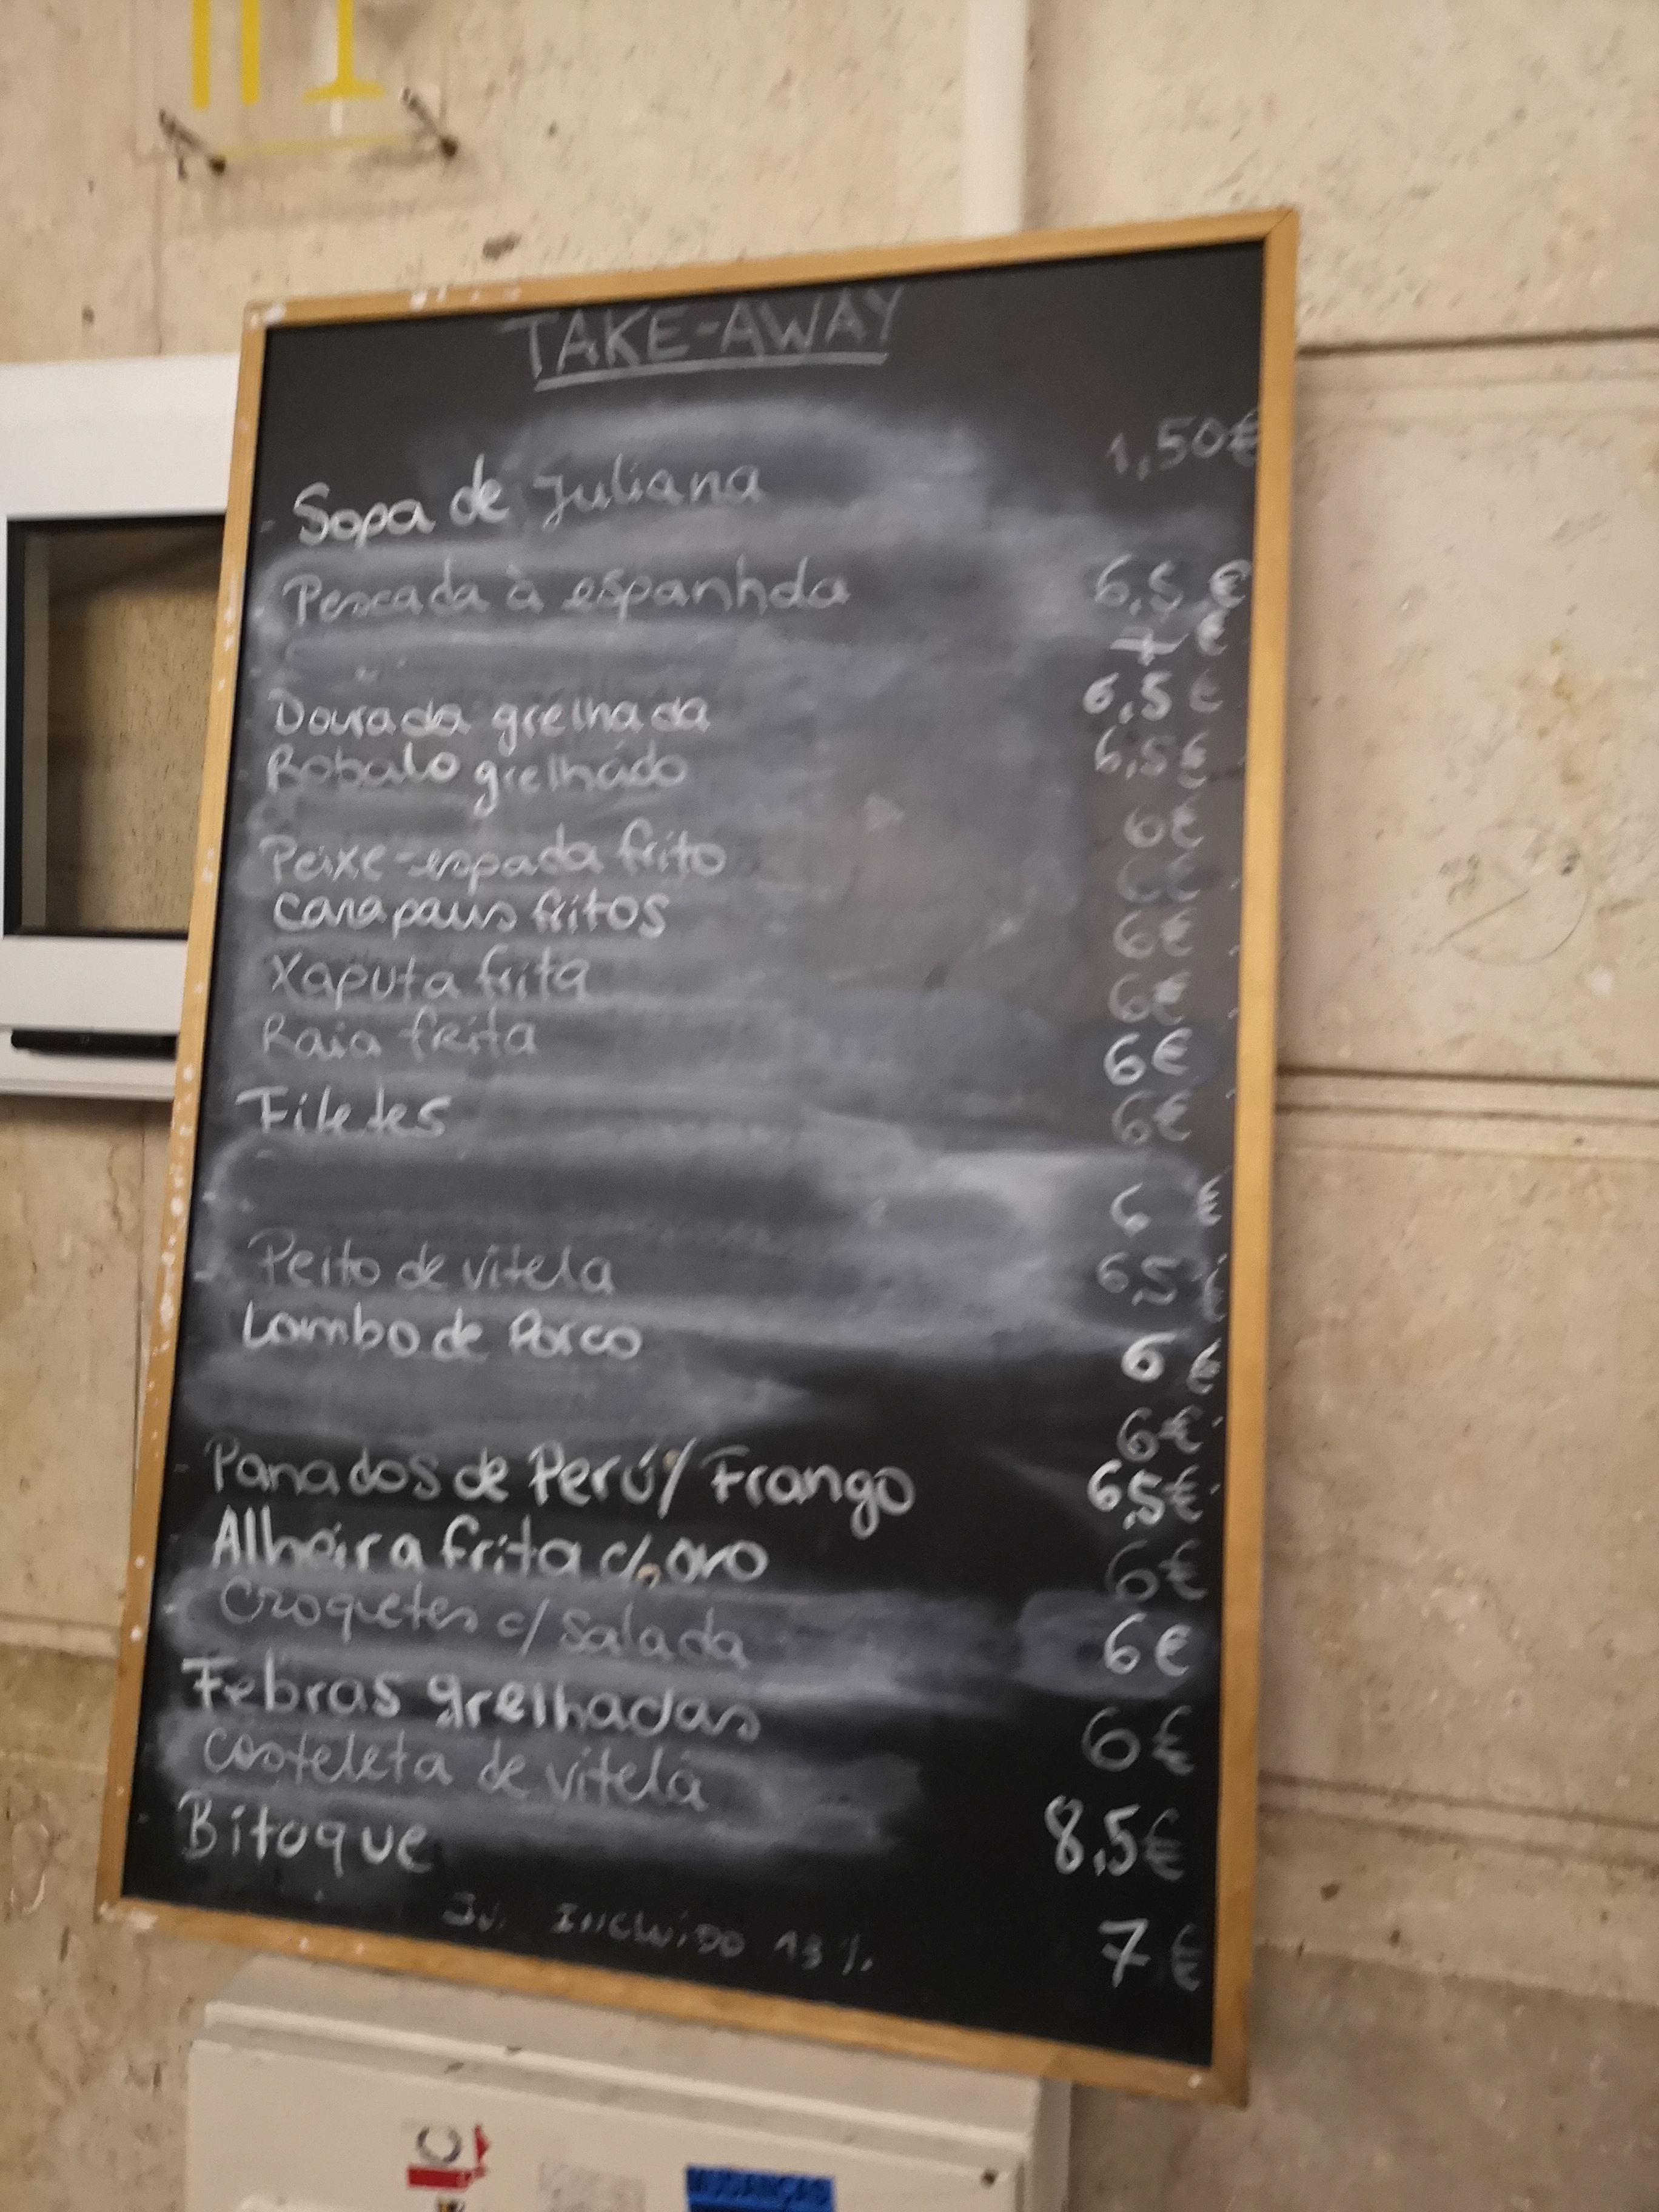 TAKE-AWAY
Sopa de Juliana 1,50€
Pescada à espanhola 6,5 €
7 €
Dourada grelhada 6,5 €
Robalo grelhado 6,5 €
Peixe-espada frito 6€
Carapaus fritos 6€
Xaputa frita 6€
Raia frita 6€
Filetes 6€
6€
6 €
Peito de vitela 6,5 €
Lombo de Porco 6 €
6€
Panados de Perú/Frango 6,5€
Alheira frita c/ ovo 6€
Croquetes c/ Salada 6€
Febras grelhadas 6€
Costeleta de vitela 8,5€
Bitoque 7 €
Incluido 13%